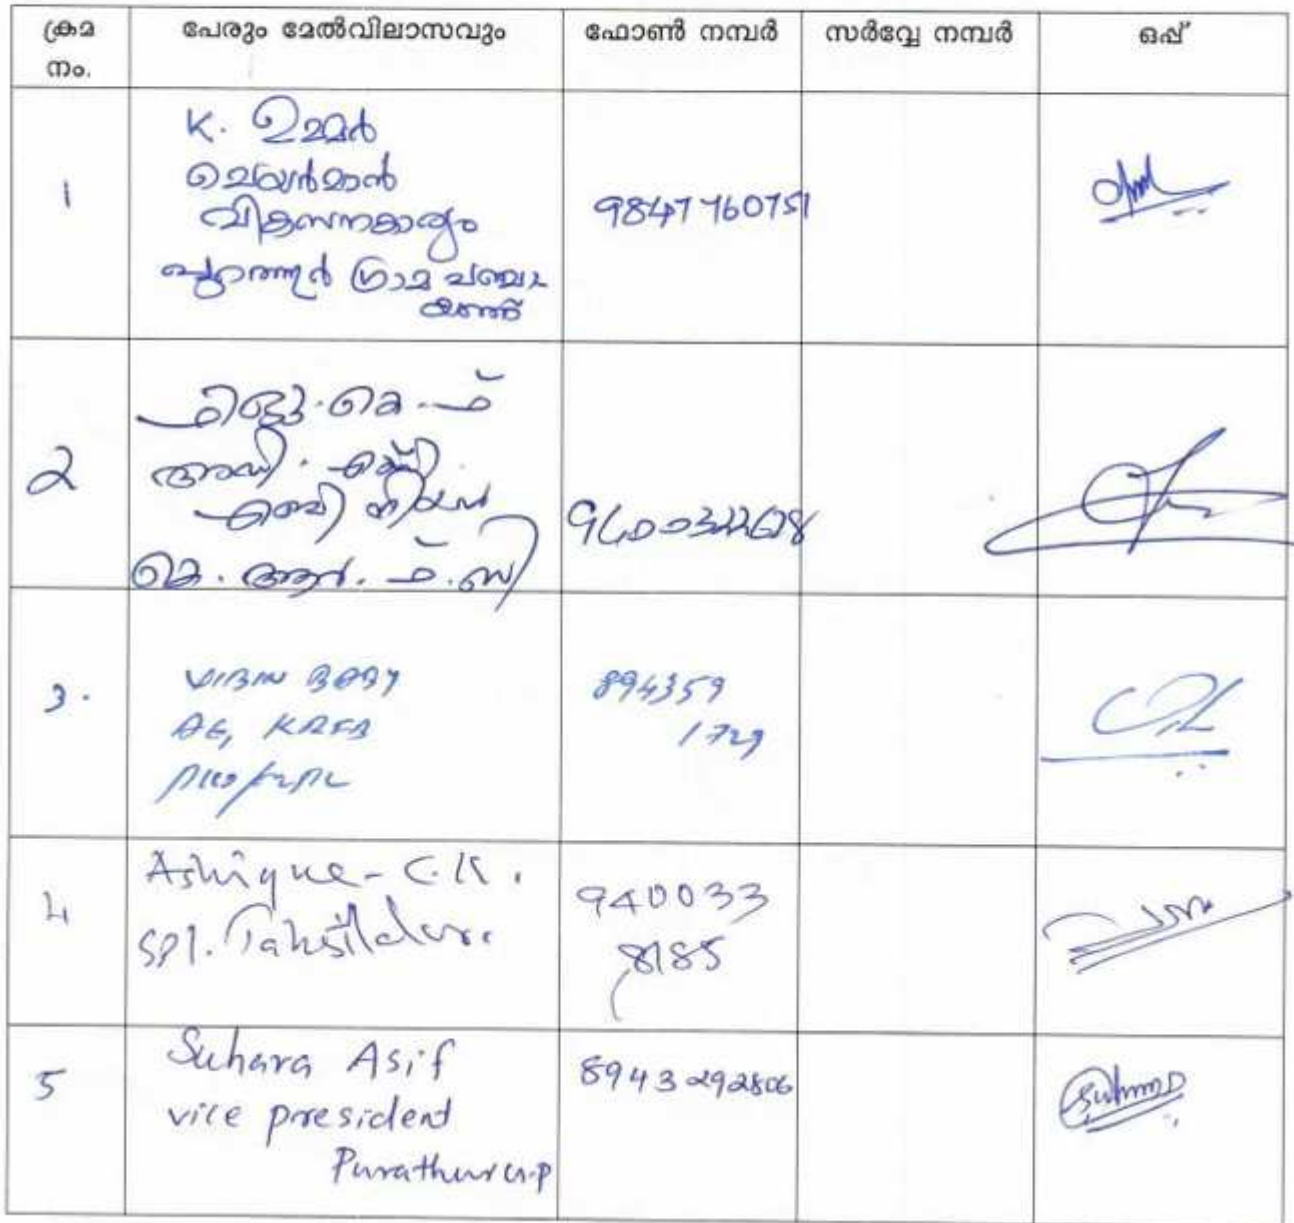 ക്രമ
നം.
പേരും മേൽവിലാസവും
ഫോൺ നമ്പർ
സർവ്വേ നമ്പർ
ഒപ്പ്
1
K. ഉമ്മർ
ചെയർമാൻ
വികസനകാര്യം
പുറത്തൂർ ഗ്രാമ പഞ്ചാ
യത്ത്
9847760751
2
കെ. ആർ. ഫ്. ബി
3.
VIBIN BOBY
AE, KRFB
894359
1729
4
Ashique - C.K.
Spl. Tahsildar.
940033
8185
5
Suhara Asif
vice president
Purathur G.P
8943292806